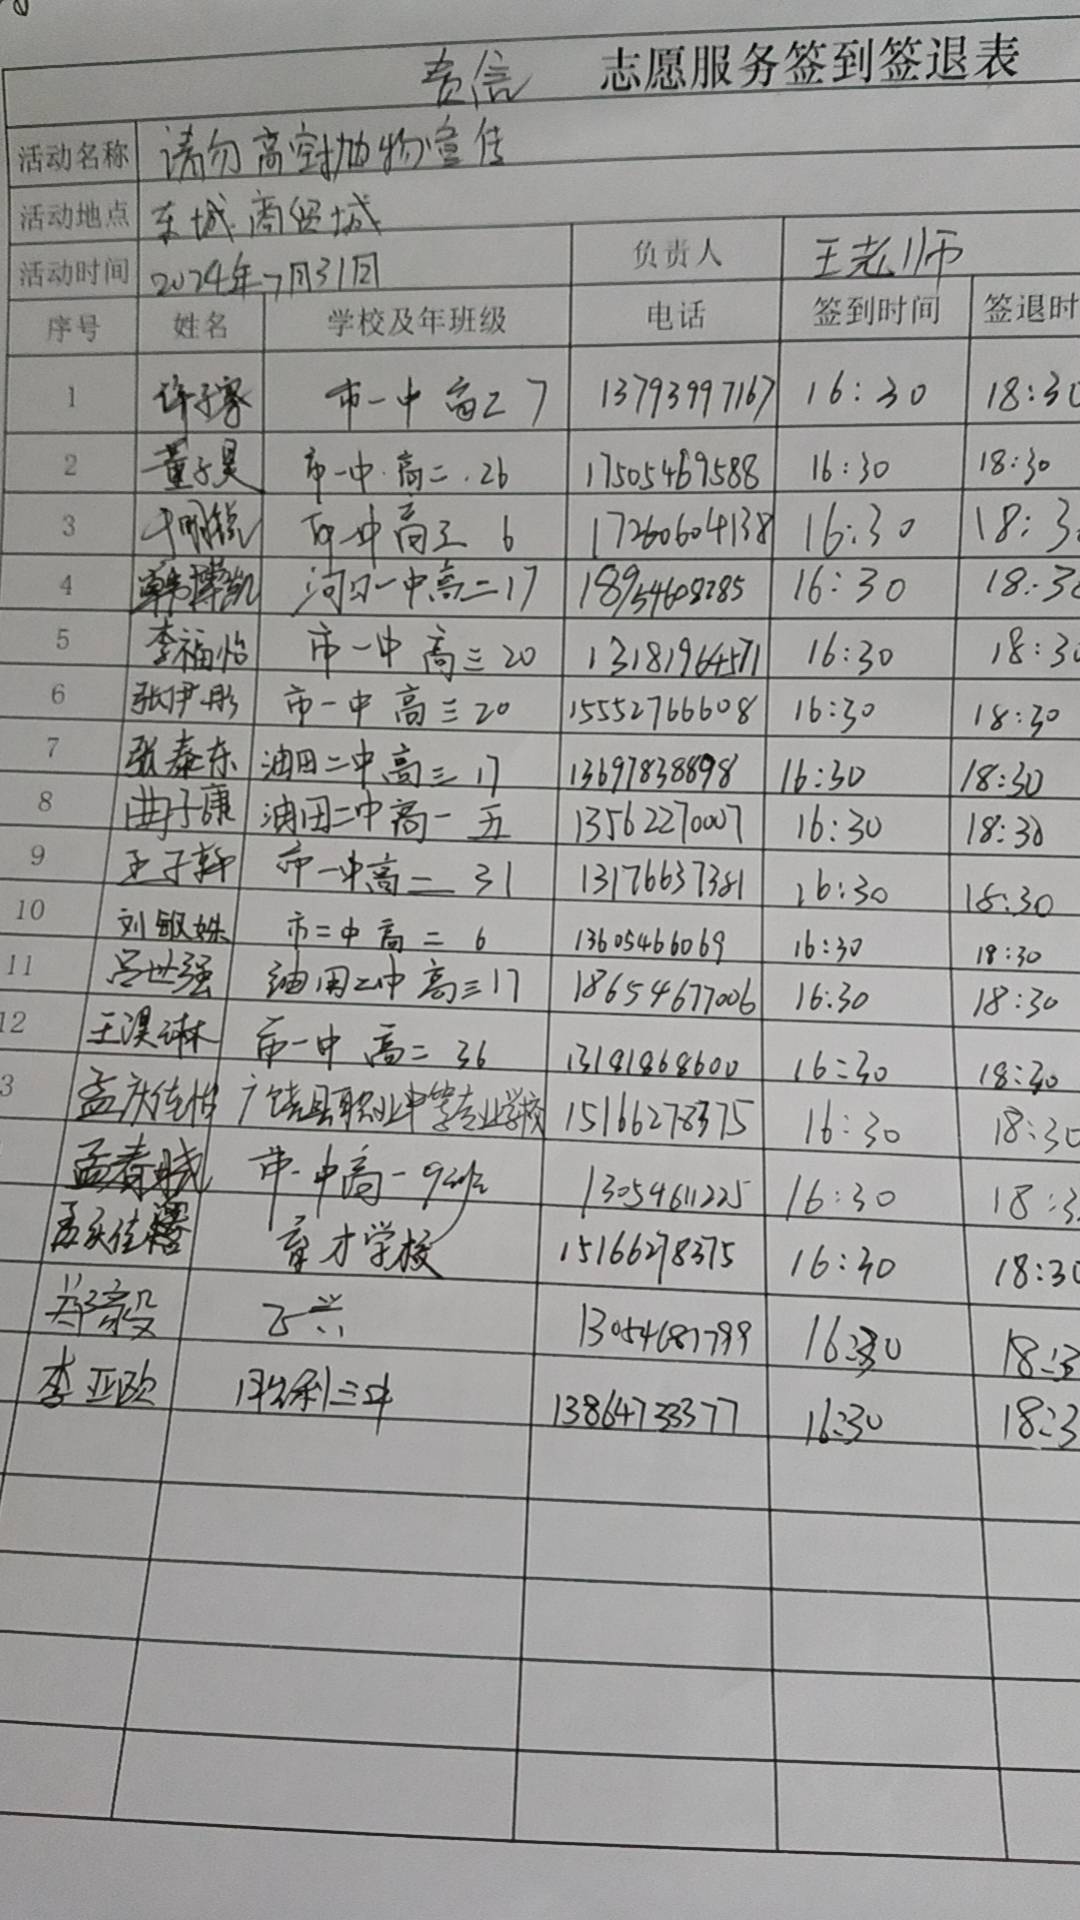 志愿服务签到签退表
活动名称 请勿高空抛物宣传
活动地点 东城商贸城
活动时间 2024年7月31日 负责人 王老师
序号 姓名 学校及年班级 电话 签到时间 签退时
1 许子 市一中 高二 7 13793997167 16:30 18:30
2 董子昊 市一中 高二 26 17505469588 16:30 18:30
3 于明锐 市一中 高三 6 17260604138 16:30 18:3
4 韩博凯 河口一中高二17 18954608285 16:30 18:30
5 李福怡 市一中 高三20 13181964571 16:30 18:30
6 张伊彤 市一中 高三20 15552766608 16:30 18:30
7 张泰东 油田二中高三17 13697838898 16:30 18:30
8 曲子康 油田二中高一五 13562270007 16:30 18:30
9 王子轩 市一中高二 31 13176637381 16:30 18:30
10 刘敏姝 市二中高二 6 13605466069 16:30 18:30
11 吕世强 油田二中高三17 18654677006 16:30 18:30
12 王淏琳 市一中 高二 36 13181868600 16:30 18:30
3 孟庆佳怡 广饶县职业中等专业学校 15166278375 16:30 18:30
孟春晓 市一中高一9班 13054611225 16:30 18:3
孟庆佳 育才学校 15166278375 16:30 18:30
郑毅 13054687799 16:30 18:3
李亚欧 胜利三中 13864733377 16:30 18:3